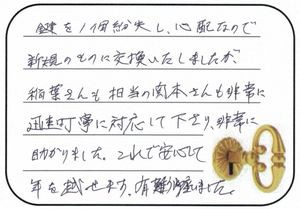 鍵を1個紛失し、心配なので
新規のものに交換いたしましたが、
稲葉さんも担当の関本さんも非常に
迅速丁寧に対応して下さり、非常に
助かりました。これで安心して
年を越せます。有難う座ました。